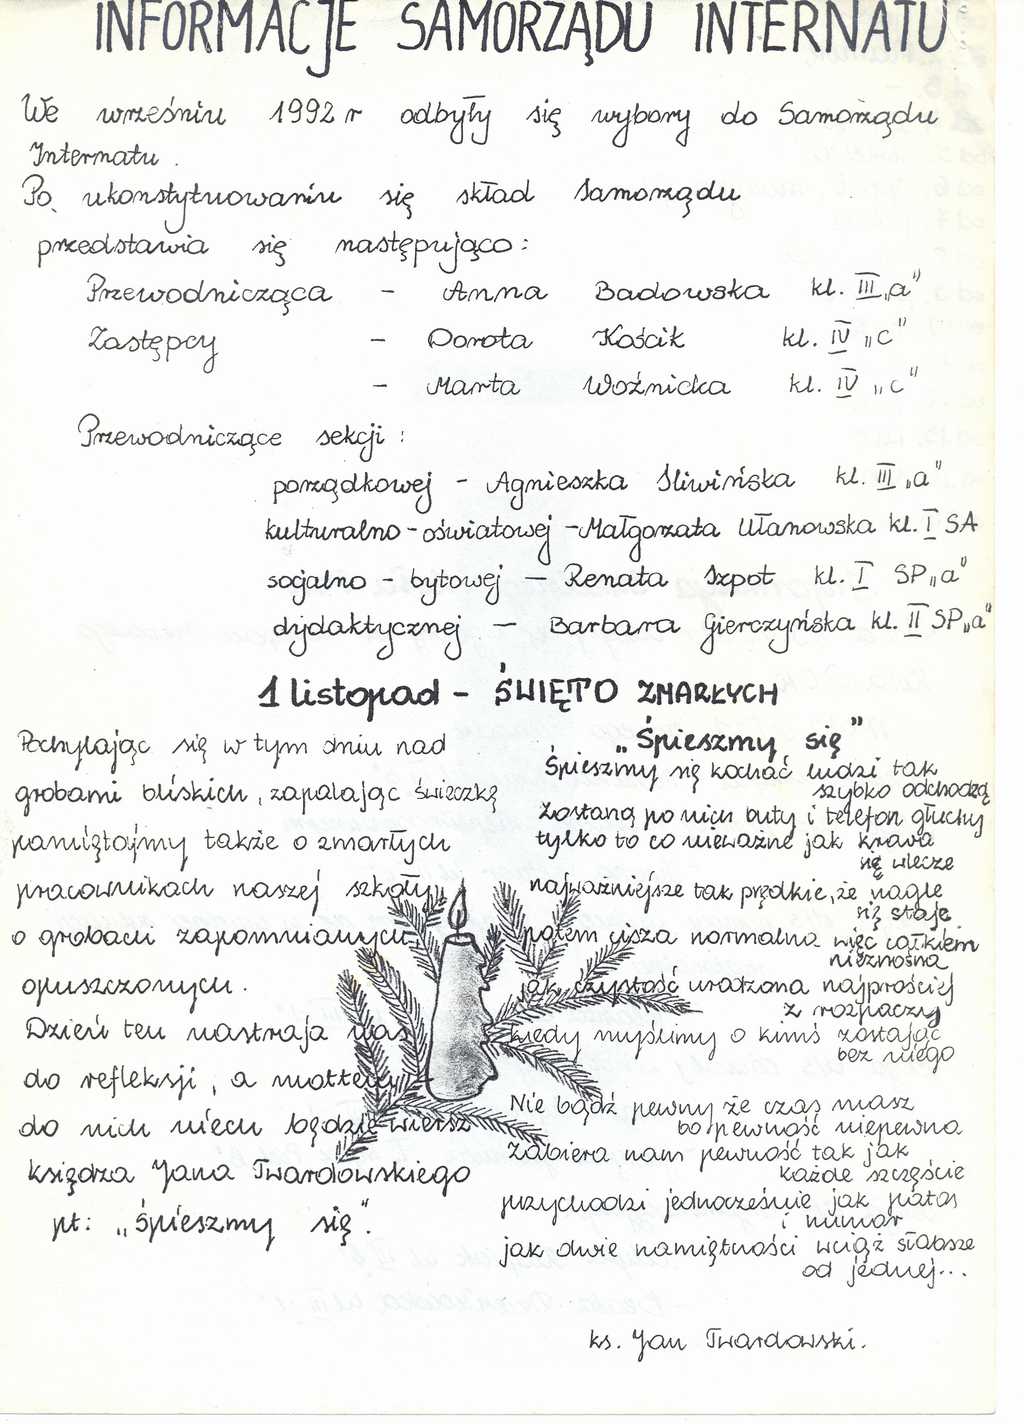 INFORMACJE SAMORZĄDU INTERNATU
We wrześniu 1992 r odbyły się wybory do Samorządu
Internatu.
Po ukonstytuowaniu się skład Samorządu
przedstawia się następująco:
Przewodnicząca - Anna Badowska kl. III „a"
Zastępcy - Dorota Kościk kl. IV „c"
- Marta Woźnicka kl. IV „c"
Przewodniczące sekcji:
porządkowej - Agnieszka Śliwińska kl. III „a"
kulturalno-oświatowej - Małgorzata Ułanowska kl. I SA
socjalno-bytowej - Renata Szpot kl. I SP „a"
dydaktycznej - Barbara Gierczyńska kl. II SP „a"
1 listopad - ŚWIĘTO ZMARŁYCH
Pochylając się w tym dniu nad
grobami bliskich, zapalając świeczkę
pamiętajmy także o zmarłych
pracownikach naszej szkoły,
o grobach zapomnianych,
opuszczonych.
Dzień ten nastraja nas
do refleksji, a mottem
do nich niech będzie wiersz
księdza Jana Twardowskiego
pt: „Śpieszmy się".
„Śpieszmy się"
Śpieszmy się kochać ludzi tak
szybko odchodzą
zostaną po nich buty i telefon głuchy
tylko to co nieważne jak krowa
się wlecze
najważniejsze tak prędkie, że nagle
się staje
potem cisza normalna więc całkiem
nieznośna
jak czystość urodzona najprościej
z rozpaczy
kiedy myślimy o kimś zostając
bez niego
Nie bądź pewny że czas masz
bo pewność niepewna
zabiera nam pewność tak jak
każde szczęście
przychodzi jednocześnie jak patos
i humor
jak dwie namiętności wciąż słabsze
od jednej...
ks. Jan Twardowski.